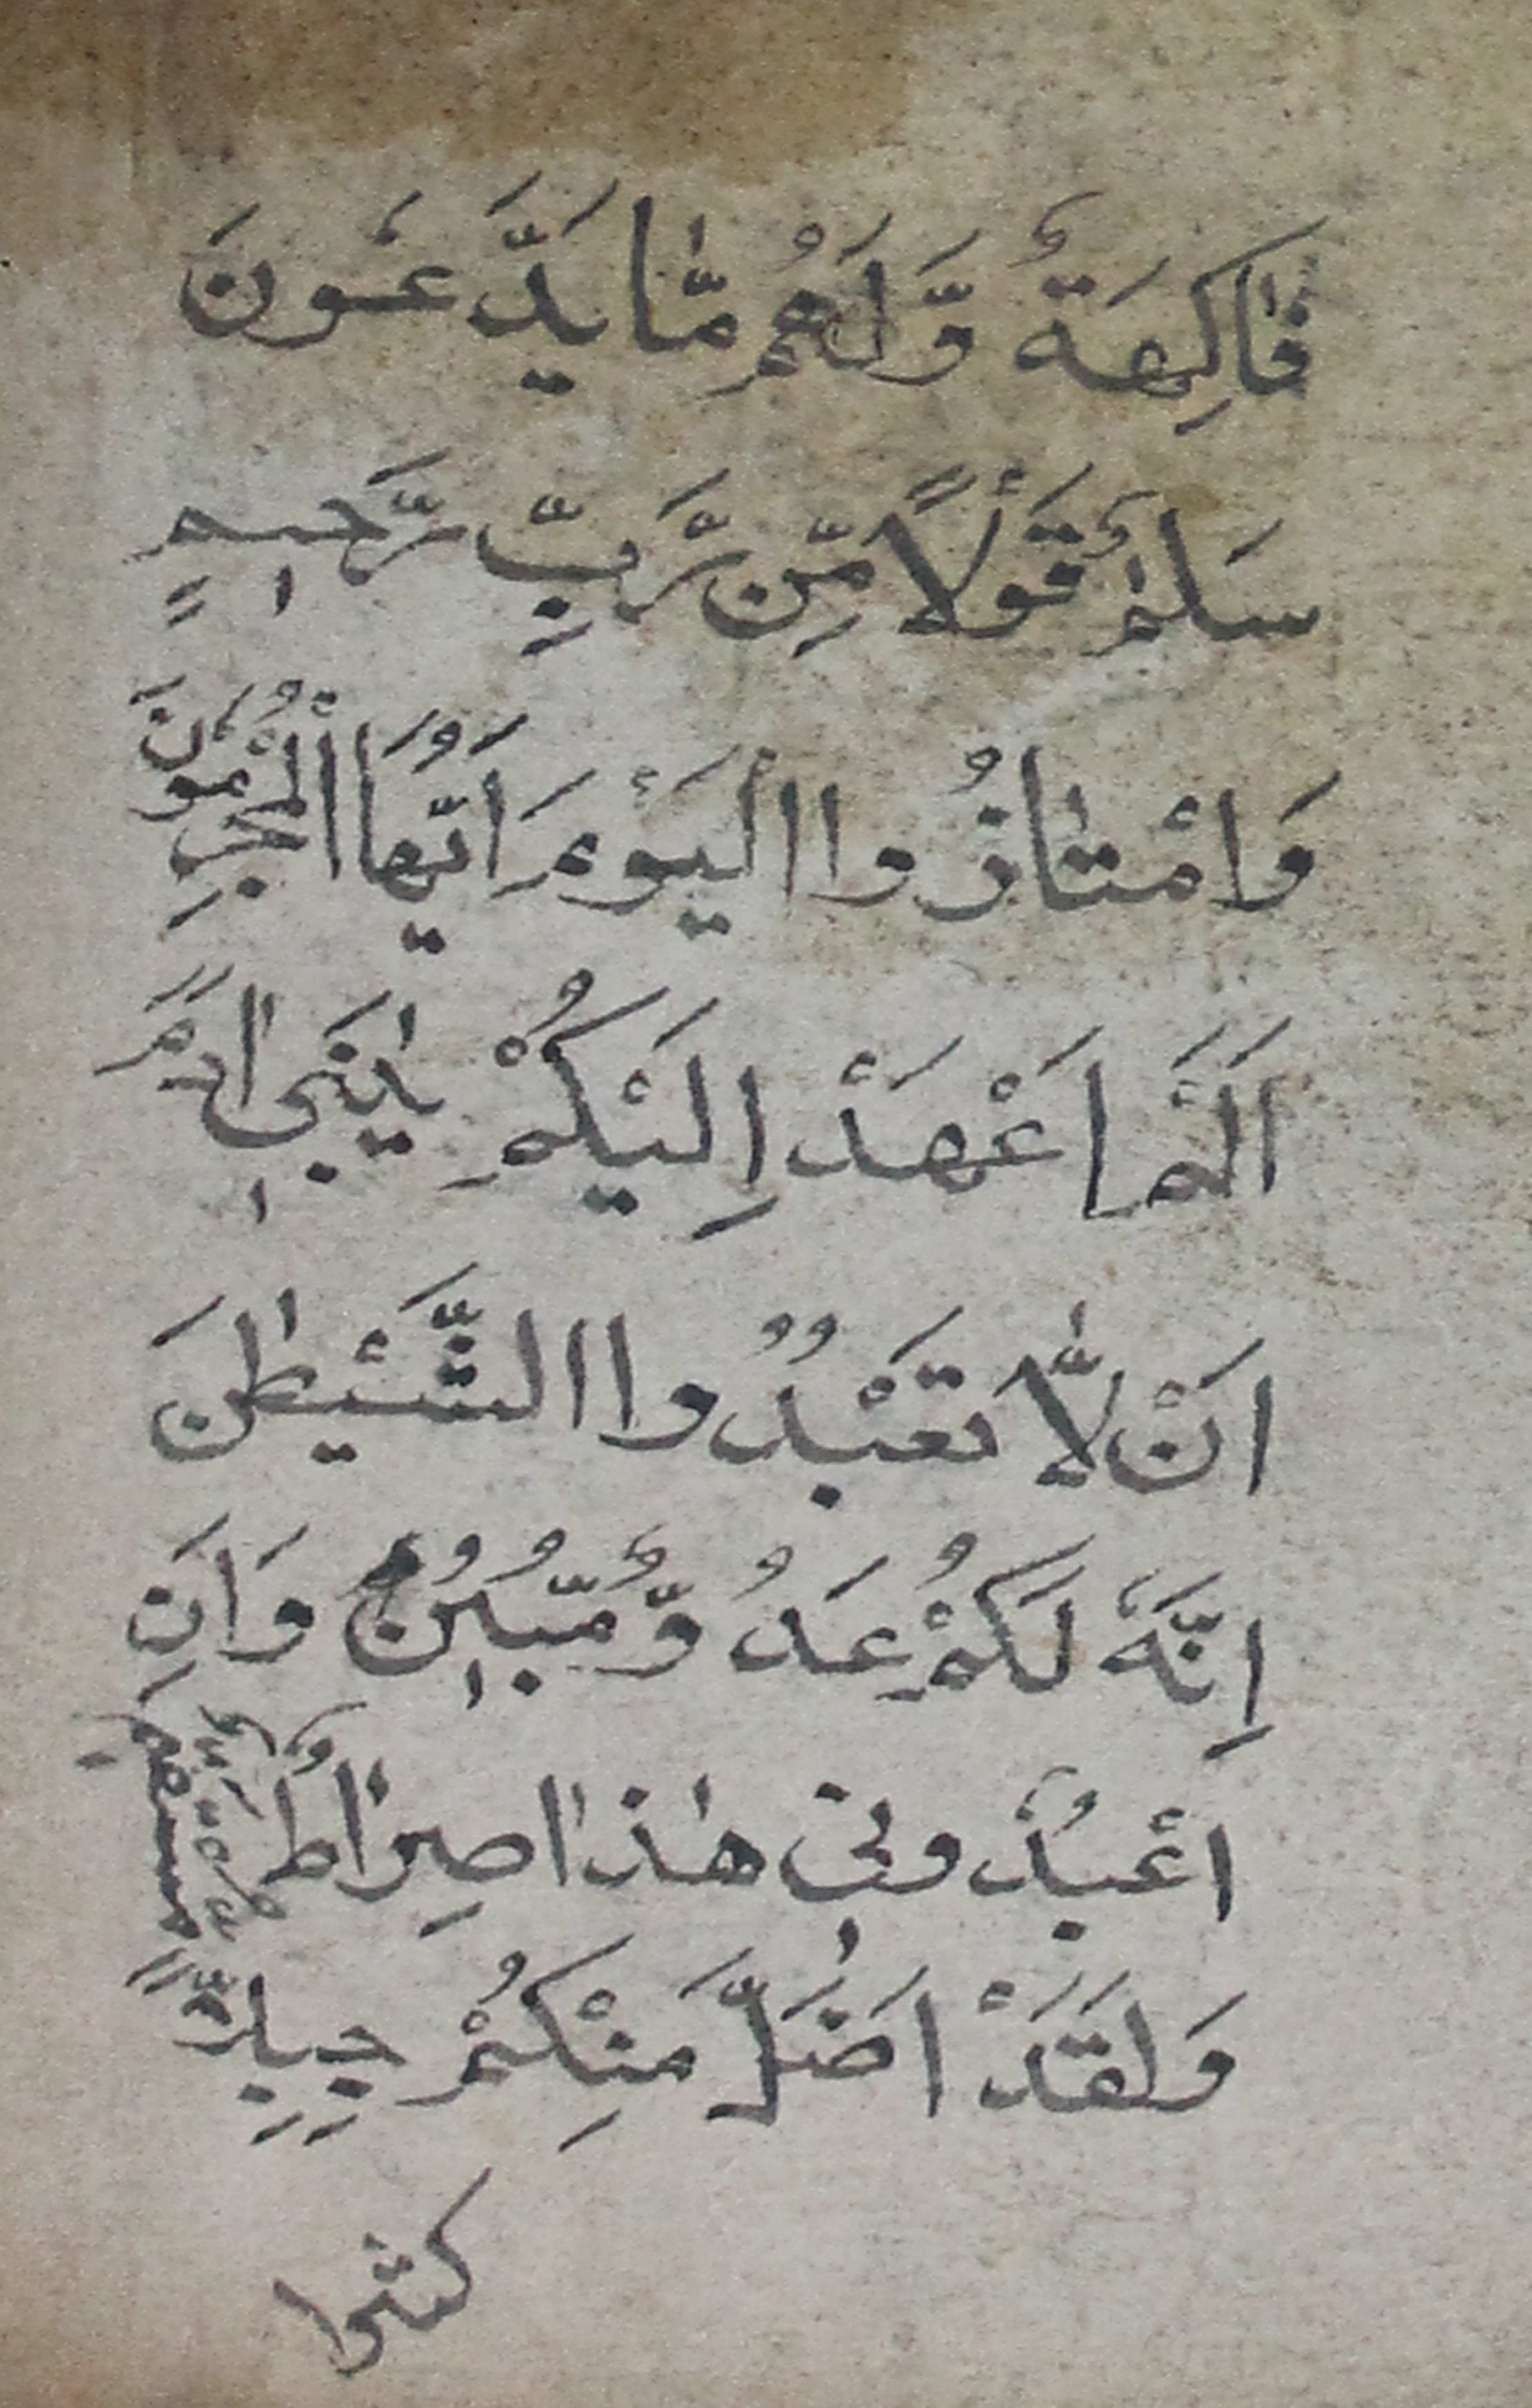 فَاكِهَةٌ وَّلَهُمْ مَّا يَدَّعُونَ
سَلٰمٌ قَوْلًا مِّنْ رَّبٍّ رَّحِيمٍ
وَامْتَازُوا الْيَوْمَ اَيُّهَا الْمُجْرِمُونَ
اَلَمْ اَعْهَدْ اِلَيْكُمْ يٰبَنِي اٰدَمَ
اَنْ لَّا تَعْبُدُوا الشَّيْطٰنَ
اِنَّهُ لَكُمْ عَدُوٌّ مُّبِينٌ وَاَنِ
اعْبُدُونِي هٰذَا صِرَاطٌ مُّسْتَقِيمٌ
وَلَقَدْ اَضَلَّ مِنْكُمْ جِبِلًّا
كثيرا